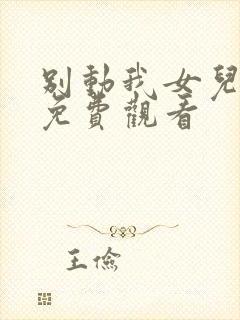 别動我女兒
免費觀看
王儉